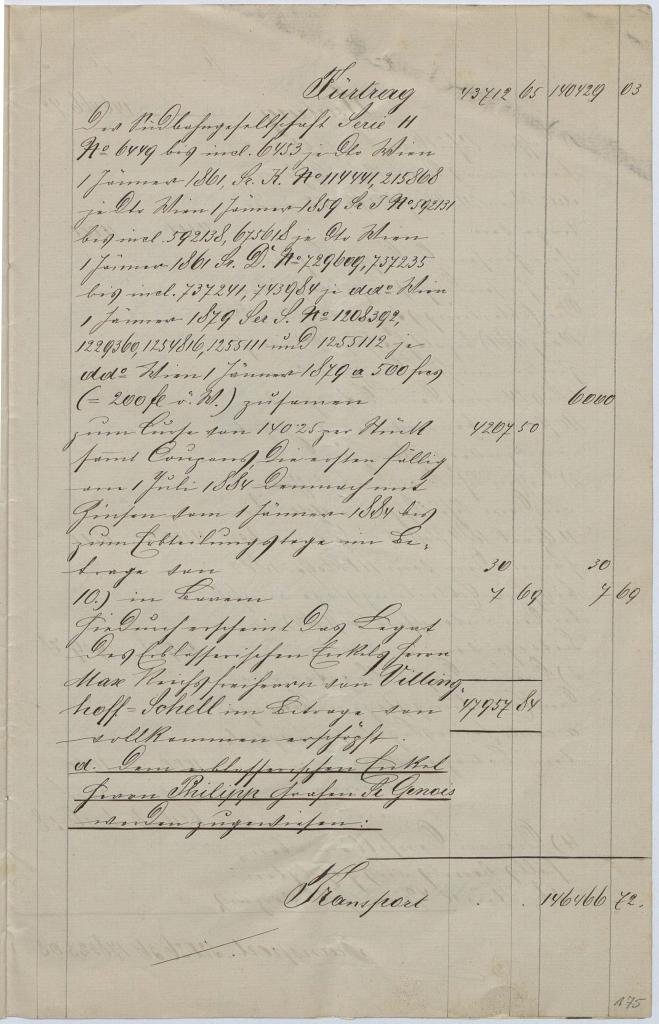 Fürtrag 43712 65 140429 03
Der Südbahngesellschaft Serie 11
No 6449 bis incl. 6453 je dto Wien
1 Jänner 1861, Sr. K. No 114441, 215868
je dto Wien 1 Jänner 1859 Sr T No 592131
bis incl. 592138, 675618 je dto Wien
1 Jänner 1861 Sr. D. No 729609, 737235
bis incl. 737241, 743984 je ddo Wien
1 Jänner 1879 Ser S. No 1208392,
1229360, 1254816, 1255111 und 1255112 je
ddo Wien 1 Jänner 1879 a 500 frcs
(= 200 fl ö. W.) zusamen 6000
zum Curse von 140.25 per Stück 4207 50
samt Coupons, die ersten fällig
am 1 Juli 1884 demnach mit
Zinsen vom 1 Jänner 1884 bis
zum Erbteilungstage im Be-
trage von 30 30
10.) in Barem 7 69 7 69
Hiedurch erscheint das Legat
des Erblasserischen Enkels Herrn
Max Reichsfreiherrn von Vitting-
hoff-Schell im Betrage von 47957 84
vollkommen erschöpft.
d. Dem erblasserischen Enkel
Herrn Philipp Grafen St Genois
werden zugewiesen:
Transport . . 146466 72.
175